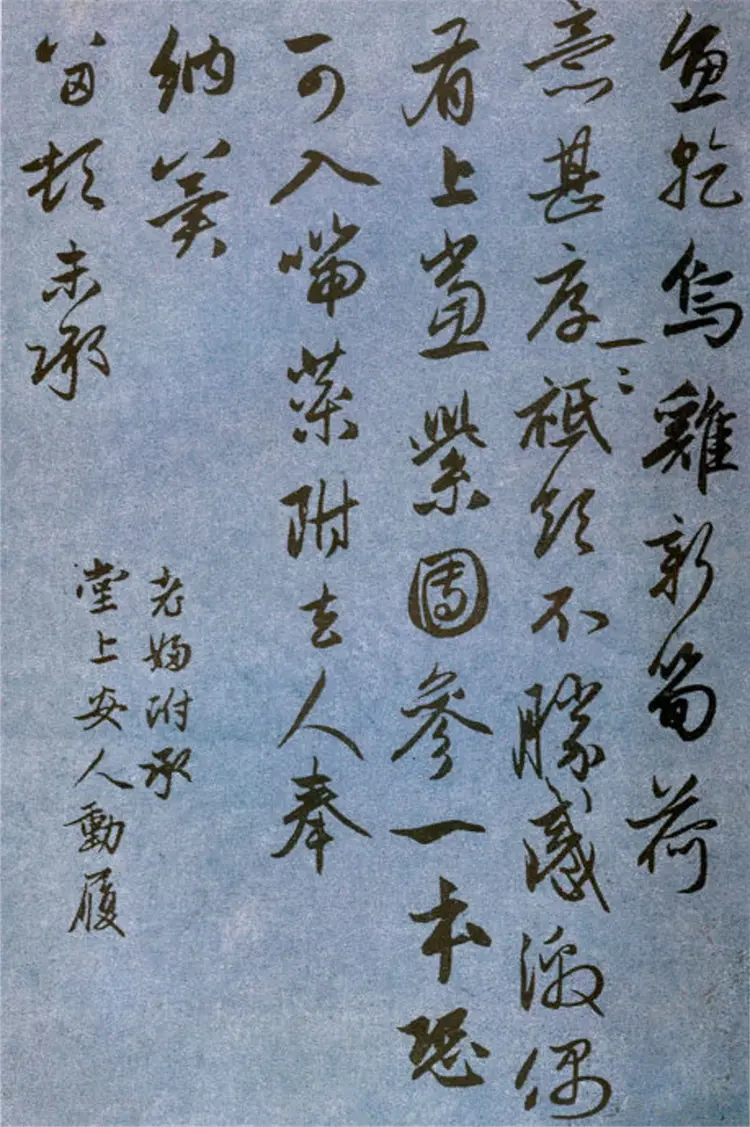 魚乾烏雞新筍荷
意甚厚一一祗領不勝感激偶
有上黨紫團參一本恐
可入嘗藥附去人奉
納冀
留頓未承
老婦附承
堂上安人動履